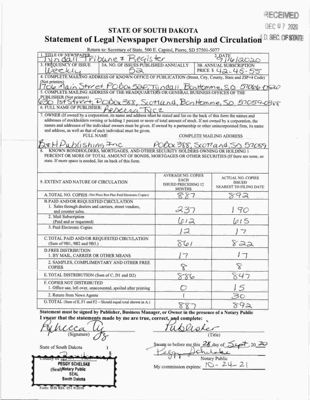 RECEIVED
DEC 07 2020
S.D. SEC. OF STATE
STATE OF SOUTH DAKOTA
Statement of Legal Newspaper Ownership and Circulation
Return to: Secretary of State, 500 E. Capitol, Pierre, SD 57501-5077
1. TITLE OF NEWSPAPER
2. DATE
Tyndall Tribune & Register
3. FREQUENCY OF ISSUE
3A. NO. OF ISSUES PUBLISHED ANNUALLY
3B. ANNUAL SUBSCRIPTION
Weekly
52
PRICE $ 42.45-55
4. COMPLETE MAILING ADDRESS OF KNOWN OFFICE OF PUBLICATION (Street, City, County, State and ZIP+4 Code)
(Not printers)
5. COMPLETE MAILING ADDRESS OF THE HEADQUARTERS OF GENERAL BUSINESS OFFICE OF THE
PUBLISHER (Not printers)
6. FULL NAME OF PUBLISHER:
7. OWNER (If owned by a corporation, its name and address must be stated and list on the back of this form the names and
addresses of stockholders owning or holding 1 percent or more of total amount of stock. If not owned by a corporation, the
names and addresses of the individual owners must be given. If owned by a partnership or other unincorporated firm, its name
and address, as well as that of each individual must be given.
FULL NAME
COMPLETE MAILING ADDRESS
B&H Publishing Inc
PO Box 388, Scotland, SD 57059
8. KNOWN BONDHOLDERS, MORTGAGEES, AND OTHER SECURITY HOLDERS OWNING OR HOLDING 1
PERCENT OR MORE OF TOTAL AMOUNT OF BONDS, MORTGAGES OR OTHER SECURITIES (If there are none, so
state. If more space is needed, list on back of this form.
9. EXTENT AND NATURE OF CIRCULATION
AVERAGE NO. COPIES
EACH
ISSUED PRECEDING 12
MONTHS
ACTUAL NO. COPIES
ISSUED
NEAREST TO FILING DATE
A. TOTAL NO. COPIES
887
892
B. PAID AND/OR REQUESTED CIRCULATION
1. Sales through dealers and carriers, street vendors,
and counter sales.
237
190
2. Mail Subscription
(Paid and or requested)
612
615
3. Paid Electronic Copies
12
17
C. TOTAL PAID AND/OR REQUESTED CIRCULATION
(Sum of 9B1, 9B2 and 9B3.)
861
822
D. FREE DISTRIBUTION
1. BY MAIL, CARRIER OR OTHER MEANS
17
17
2. SAMPLES, COMPLIMENTARY AND OTHER FREE
COPIES
8
8
E. TOTAL DISTRIBUTION (Sum of C, D1 and D2)
886
847
F. COPIES NOT DISTRIBUTED
1. Office use, left over, unaccounted, spoiled after printing
0
15
2. Return from News Agents
1
30
887
892
Statement must be signed by Publisher, Business Manager, or Owner in the presence of a Notary Public
I swear that the statements made by me are true, correct, and complete:
Publisher
(Signature)
(Title)
State of South Dakota
Sworn to before me this 28 day of Sept, 20 20
Peggy Schelske
Notary Public
My commission expires: 10-24-21
PEGGY SCHELSKE
Notary Public
SEAL
South Dakota